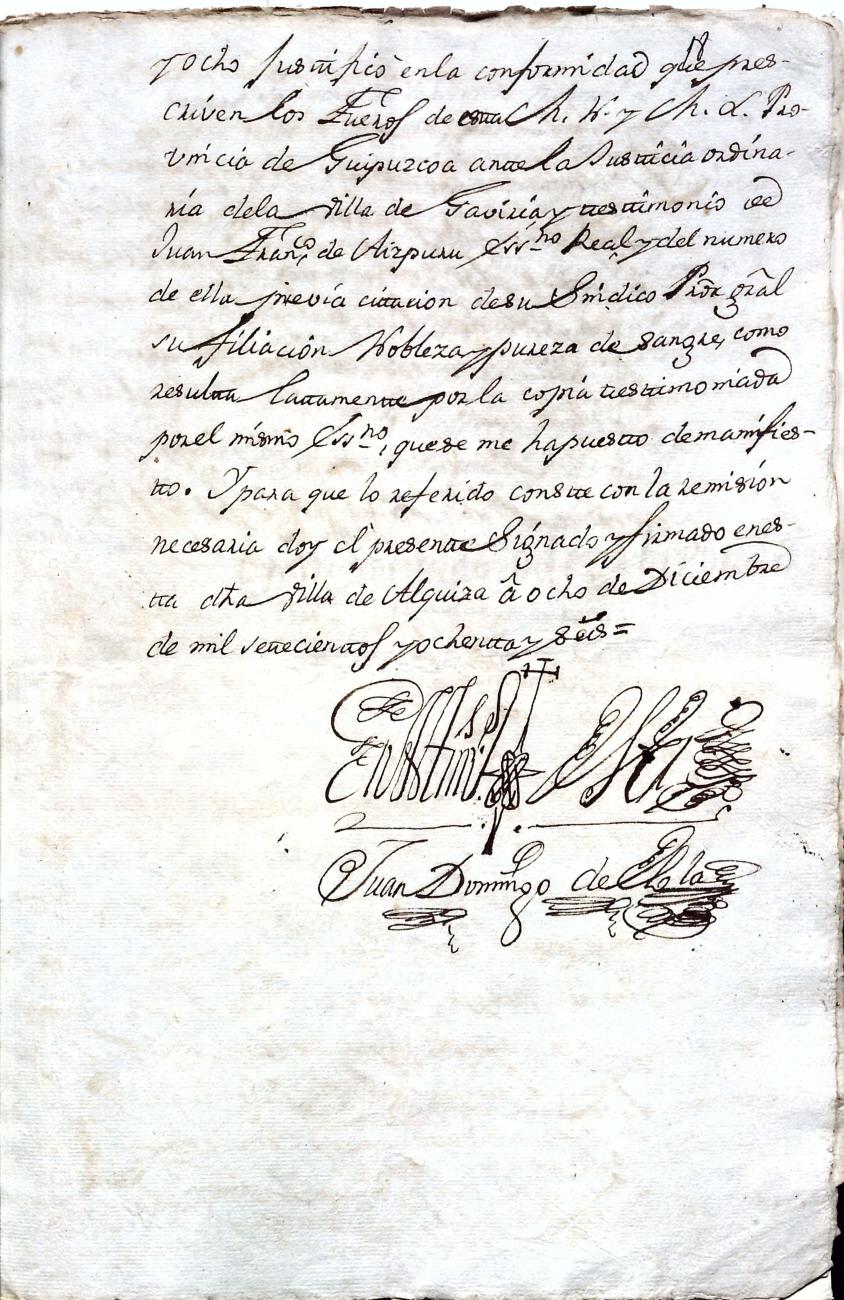 18
y ocho justificó en la conformidad que pres-
criven los Fueros de esta M. N. y M. L. Pro-
vincia de Guipuzcoa ante la Justicia ordina-
ria dela villa de Gaviria y testimonio de
Juan Franco. de Aizpuru Essno Real y del numero
de ella previa citacion desu Sindico Pror gral
su filiación Nobleza y pureza de sangre, como
resulta latamente por la copia testimoniada
porel mismo Essno, quese me ha puesto demanifies-
to. Y para que lo referido conste con la remisión
necesaria doy el presente Signado y firmado enes-
ta dha villa de Alquiza â ocho de Diciembre
de mil setecientos y ochenta y seis =
En testimo
Juan Domingo de